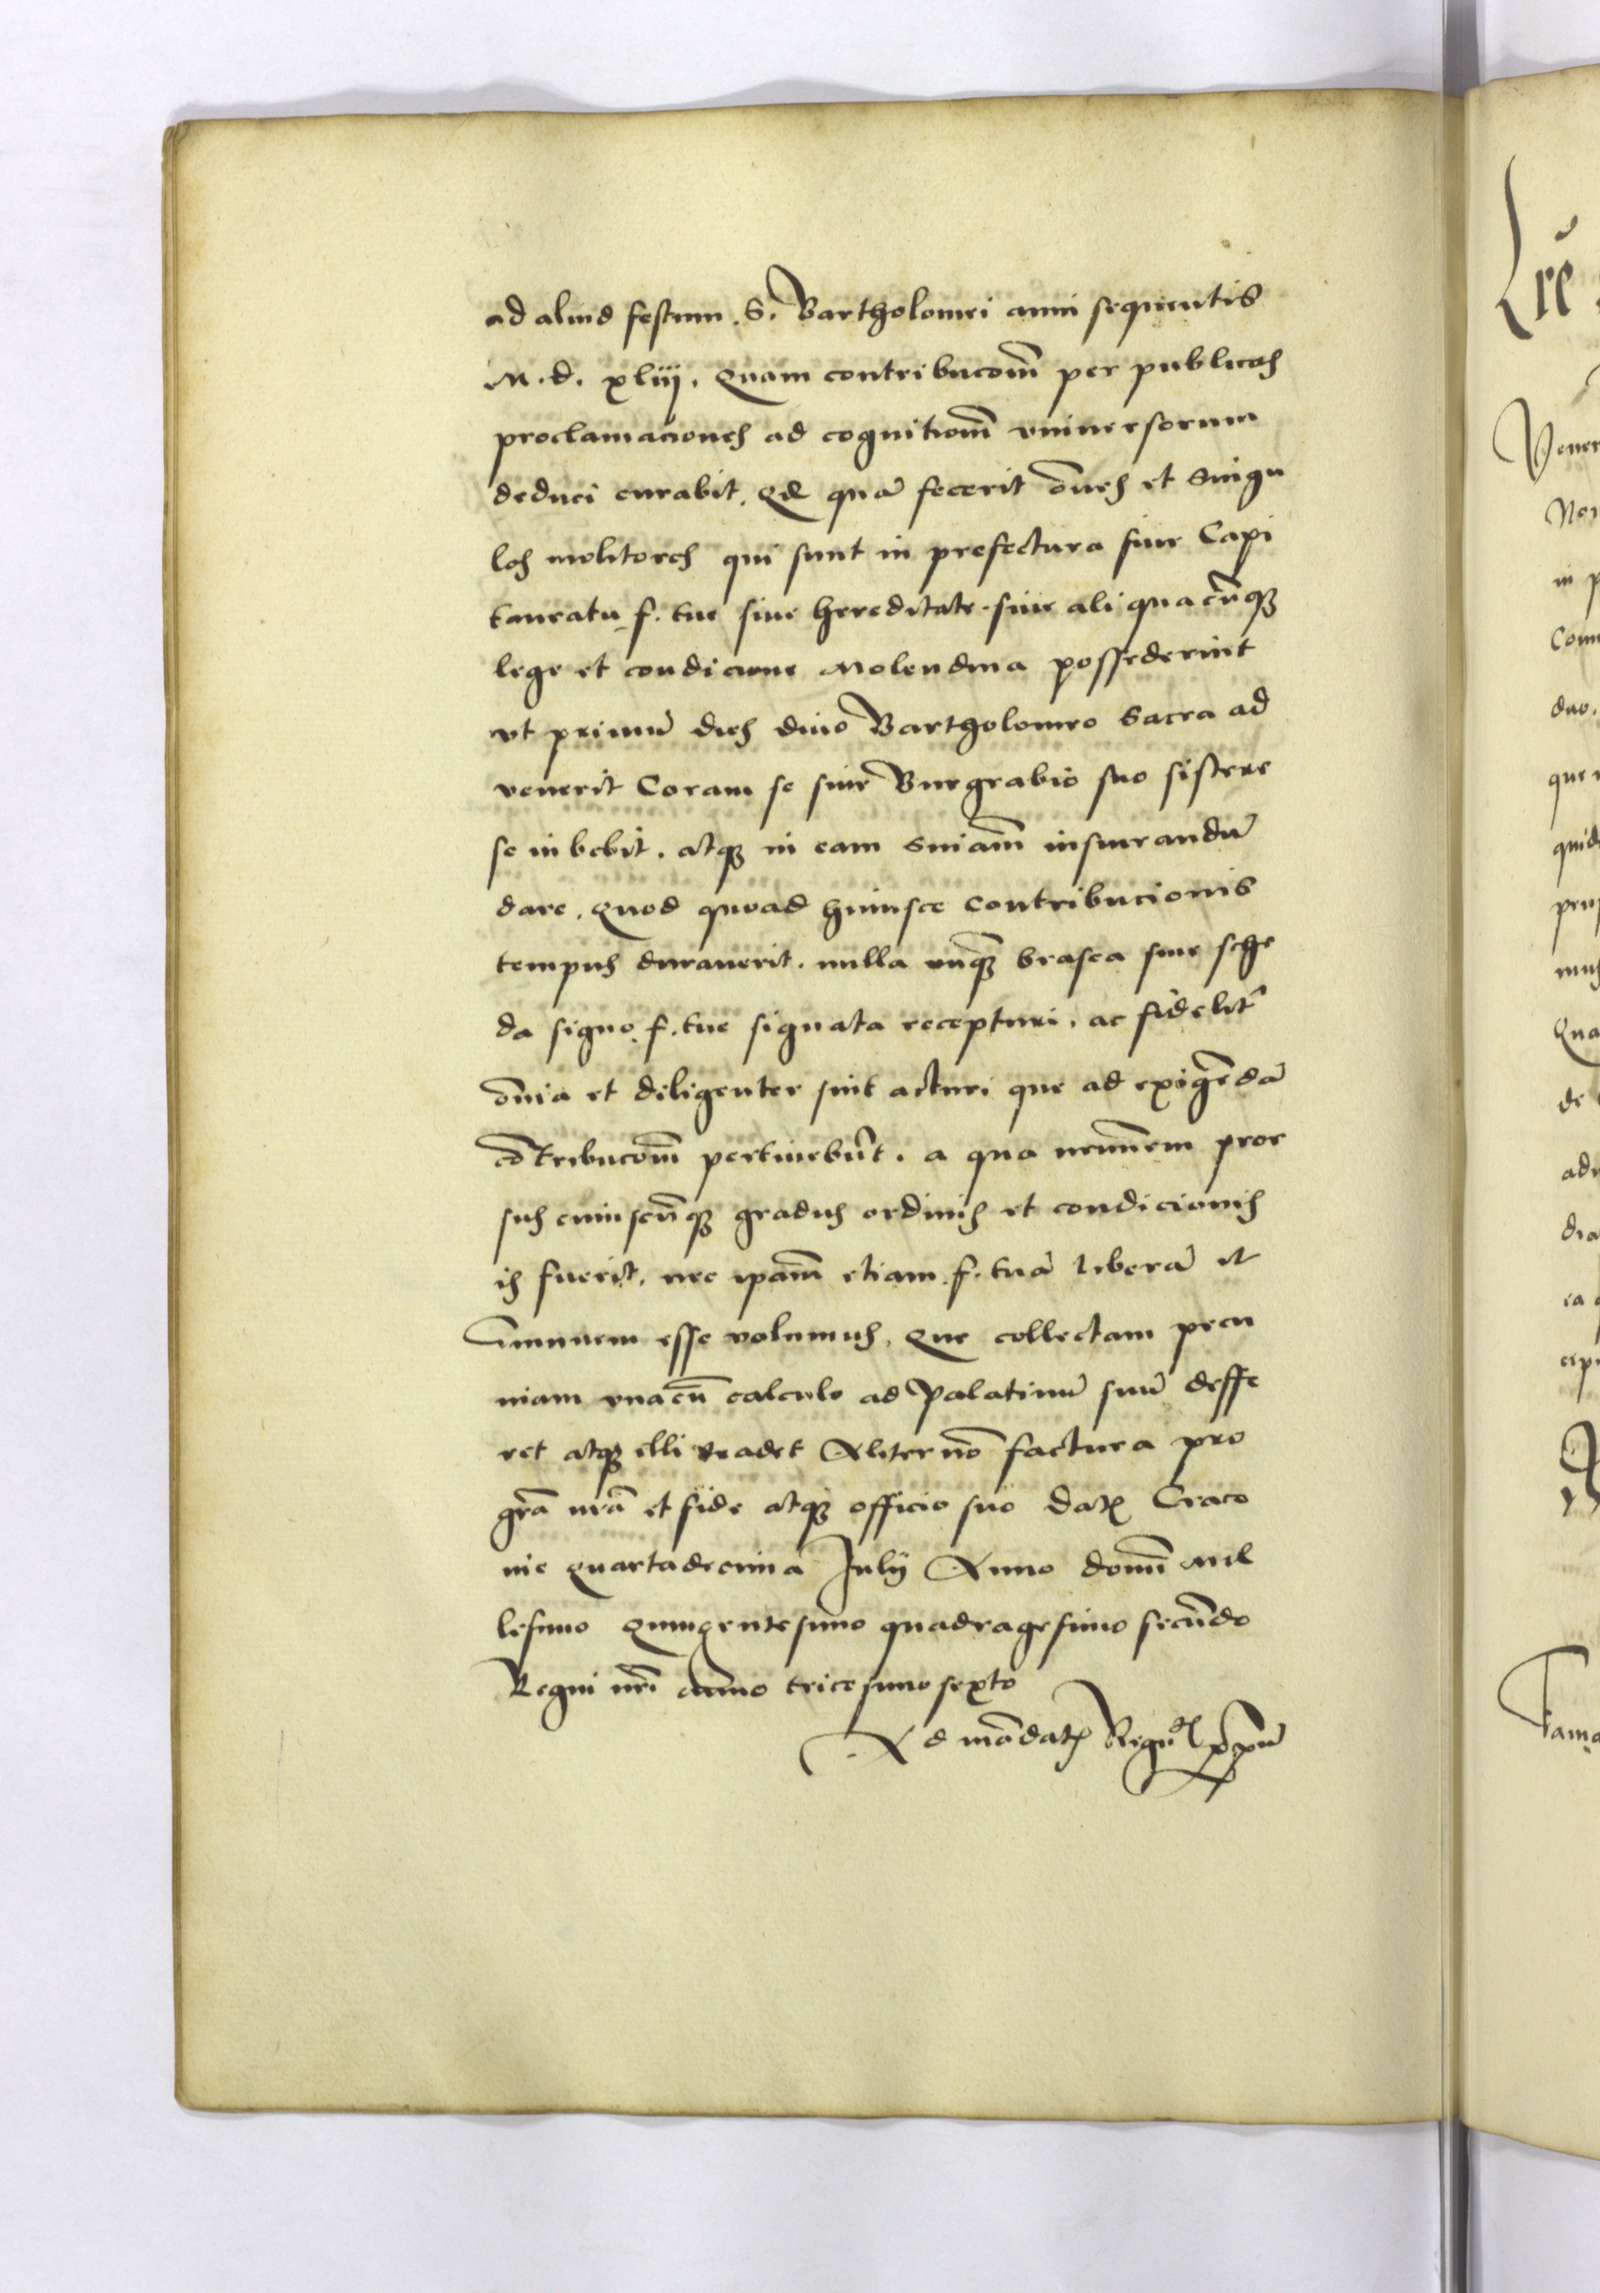 ad aliud festum .S. Bartholomei anni sequentis
M.d. xliij. Quam contribucōm̄ per publicas
proclamaciones ad cognitiom̄ vniuersorum
deduci curabit. Qd quā fecerit ōnes et Singu
los molitores qui sunt in prefectura siue Capi
taneatu f. tue siue hereditate siue aliquacūqꝫ
lege et condicione Molendina possederint
vt primū dies diuo Bartholomeo Sacra ad
venerit Coram se siue Burgrabio suo sistere
se iubebit. atqꝫ in eam sn̄iam iusiurandū
dare. Quod quoad huiusce contribucionis
tempus durauerit. nulla vnqꝫ brasea sine sche
da signo f. tue signata recepturi. ac fidelit̄
ōnia et diligenter sint acturi que ad exigēdā
cōtribucōm̄ pertinebūt. a qua nemīnem pror
sus cuiuscūqꝫ gradus ordinis et condicionis
is fuerit. nec ipam̄ etiam f. tuā liberā et
Immunem esse volumus. Que collectam pecu
niam vnacū calculo ad Palatinū suū deffe
ret atqꝫ illi tradet Aliter nō factura pro
gr̄a nr̄a et fide atqꝫ officio suo Datꝫ Craco
nie quartadecima Iulij Anno domī Mil
lesimo Quingentesimo quadragesimo secūdo
Regni nr̄i anno tricesimo sexto
Ad mādatꝫ